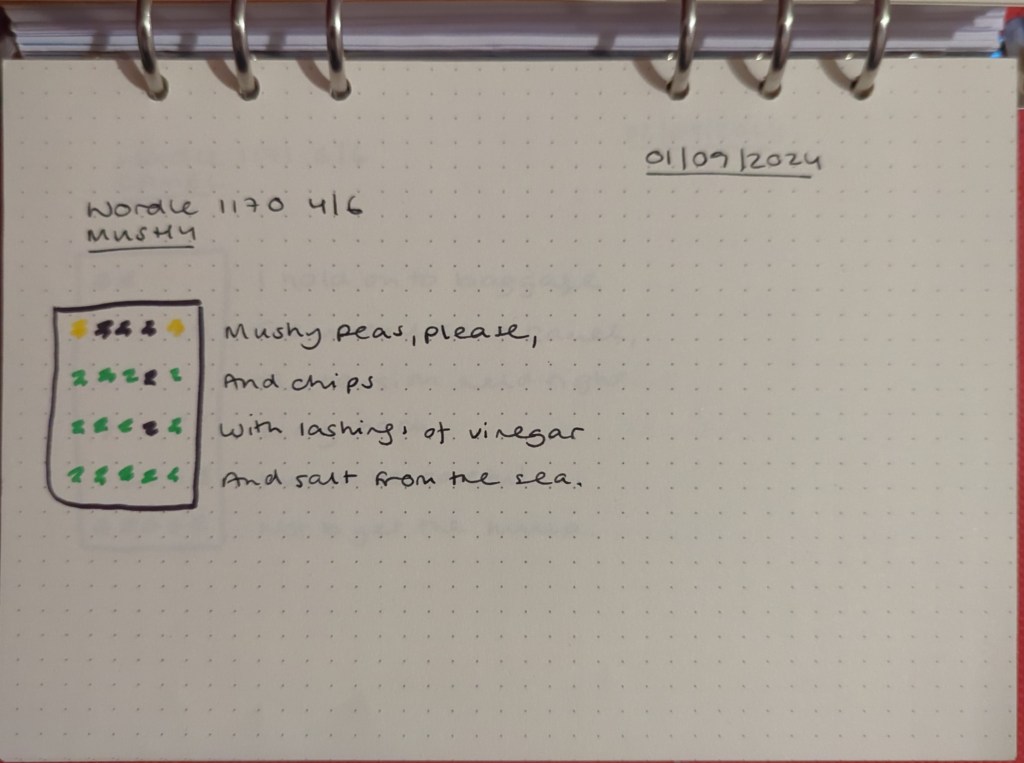 01/09/2024
Wordle 1170 4/6
MUSHY
Mushy peas, please,
And chips
With lashings of vinegar
And salt from the sea.